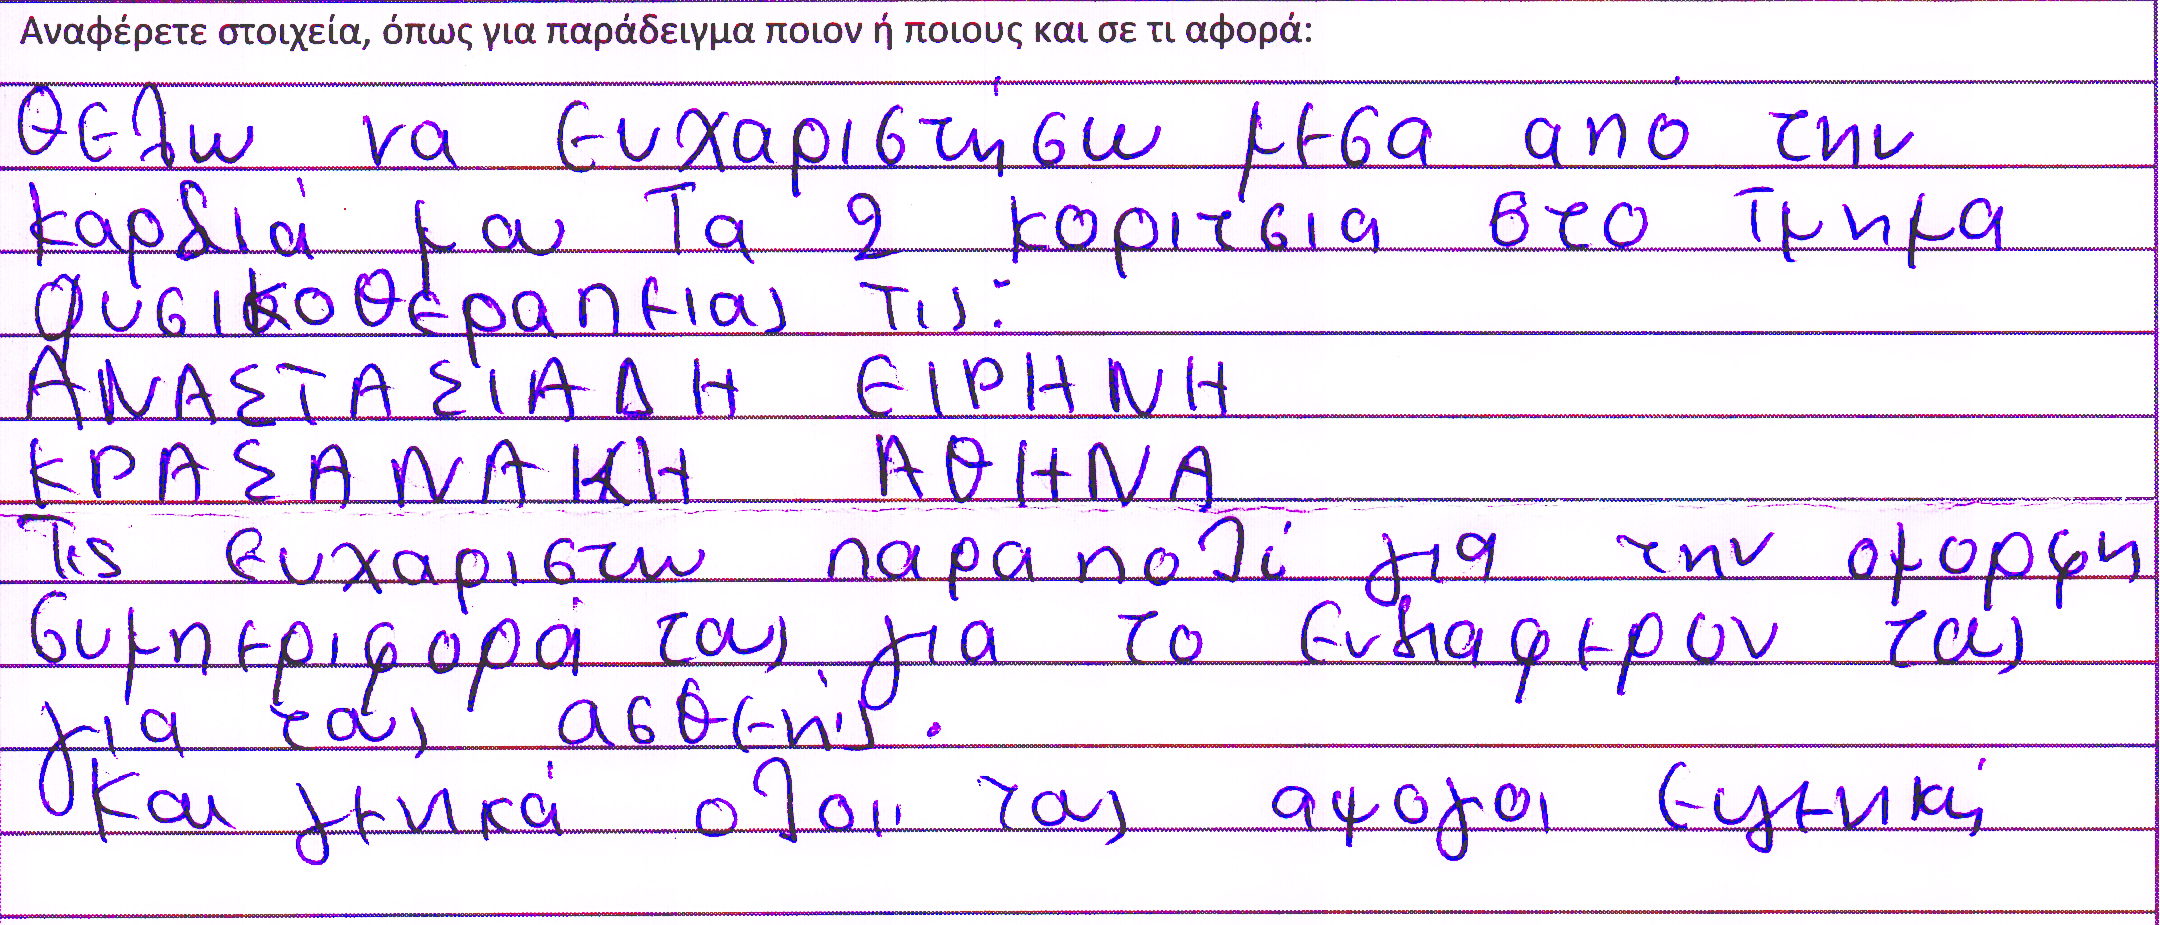 Αναφέρετε στοιχεία, όπως για παράδειγμα ποιον ή ποιους και σε τι αφορά:
Θελω να ευχαριστήσω μεσα απο την
καρδιά μου Τα 2 κοριτσια στο Τμημα
φυσικοθεραπειας τις:
ΑΝΑΣΤΑΣΙΑΔΗ ΕΙΡΗΝΗ
ΚΡΑΣΑΝΑΚΗ ΑΘΗΝΑ
Τις ευχαριστω παραπολί για την ομορφη
συμπεριφορά τους για το ενδιαφερον τους
για τους ασθενής.
Και γενικά ολοι τους αψογοι ευγενική